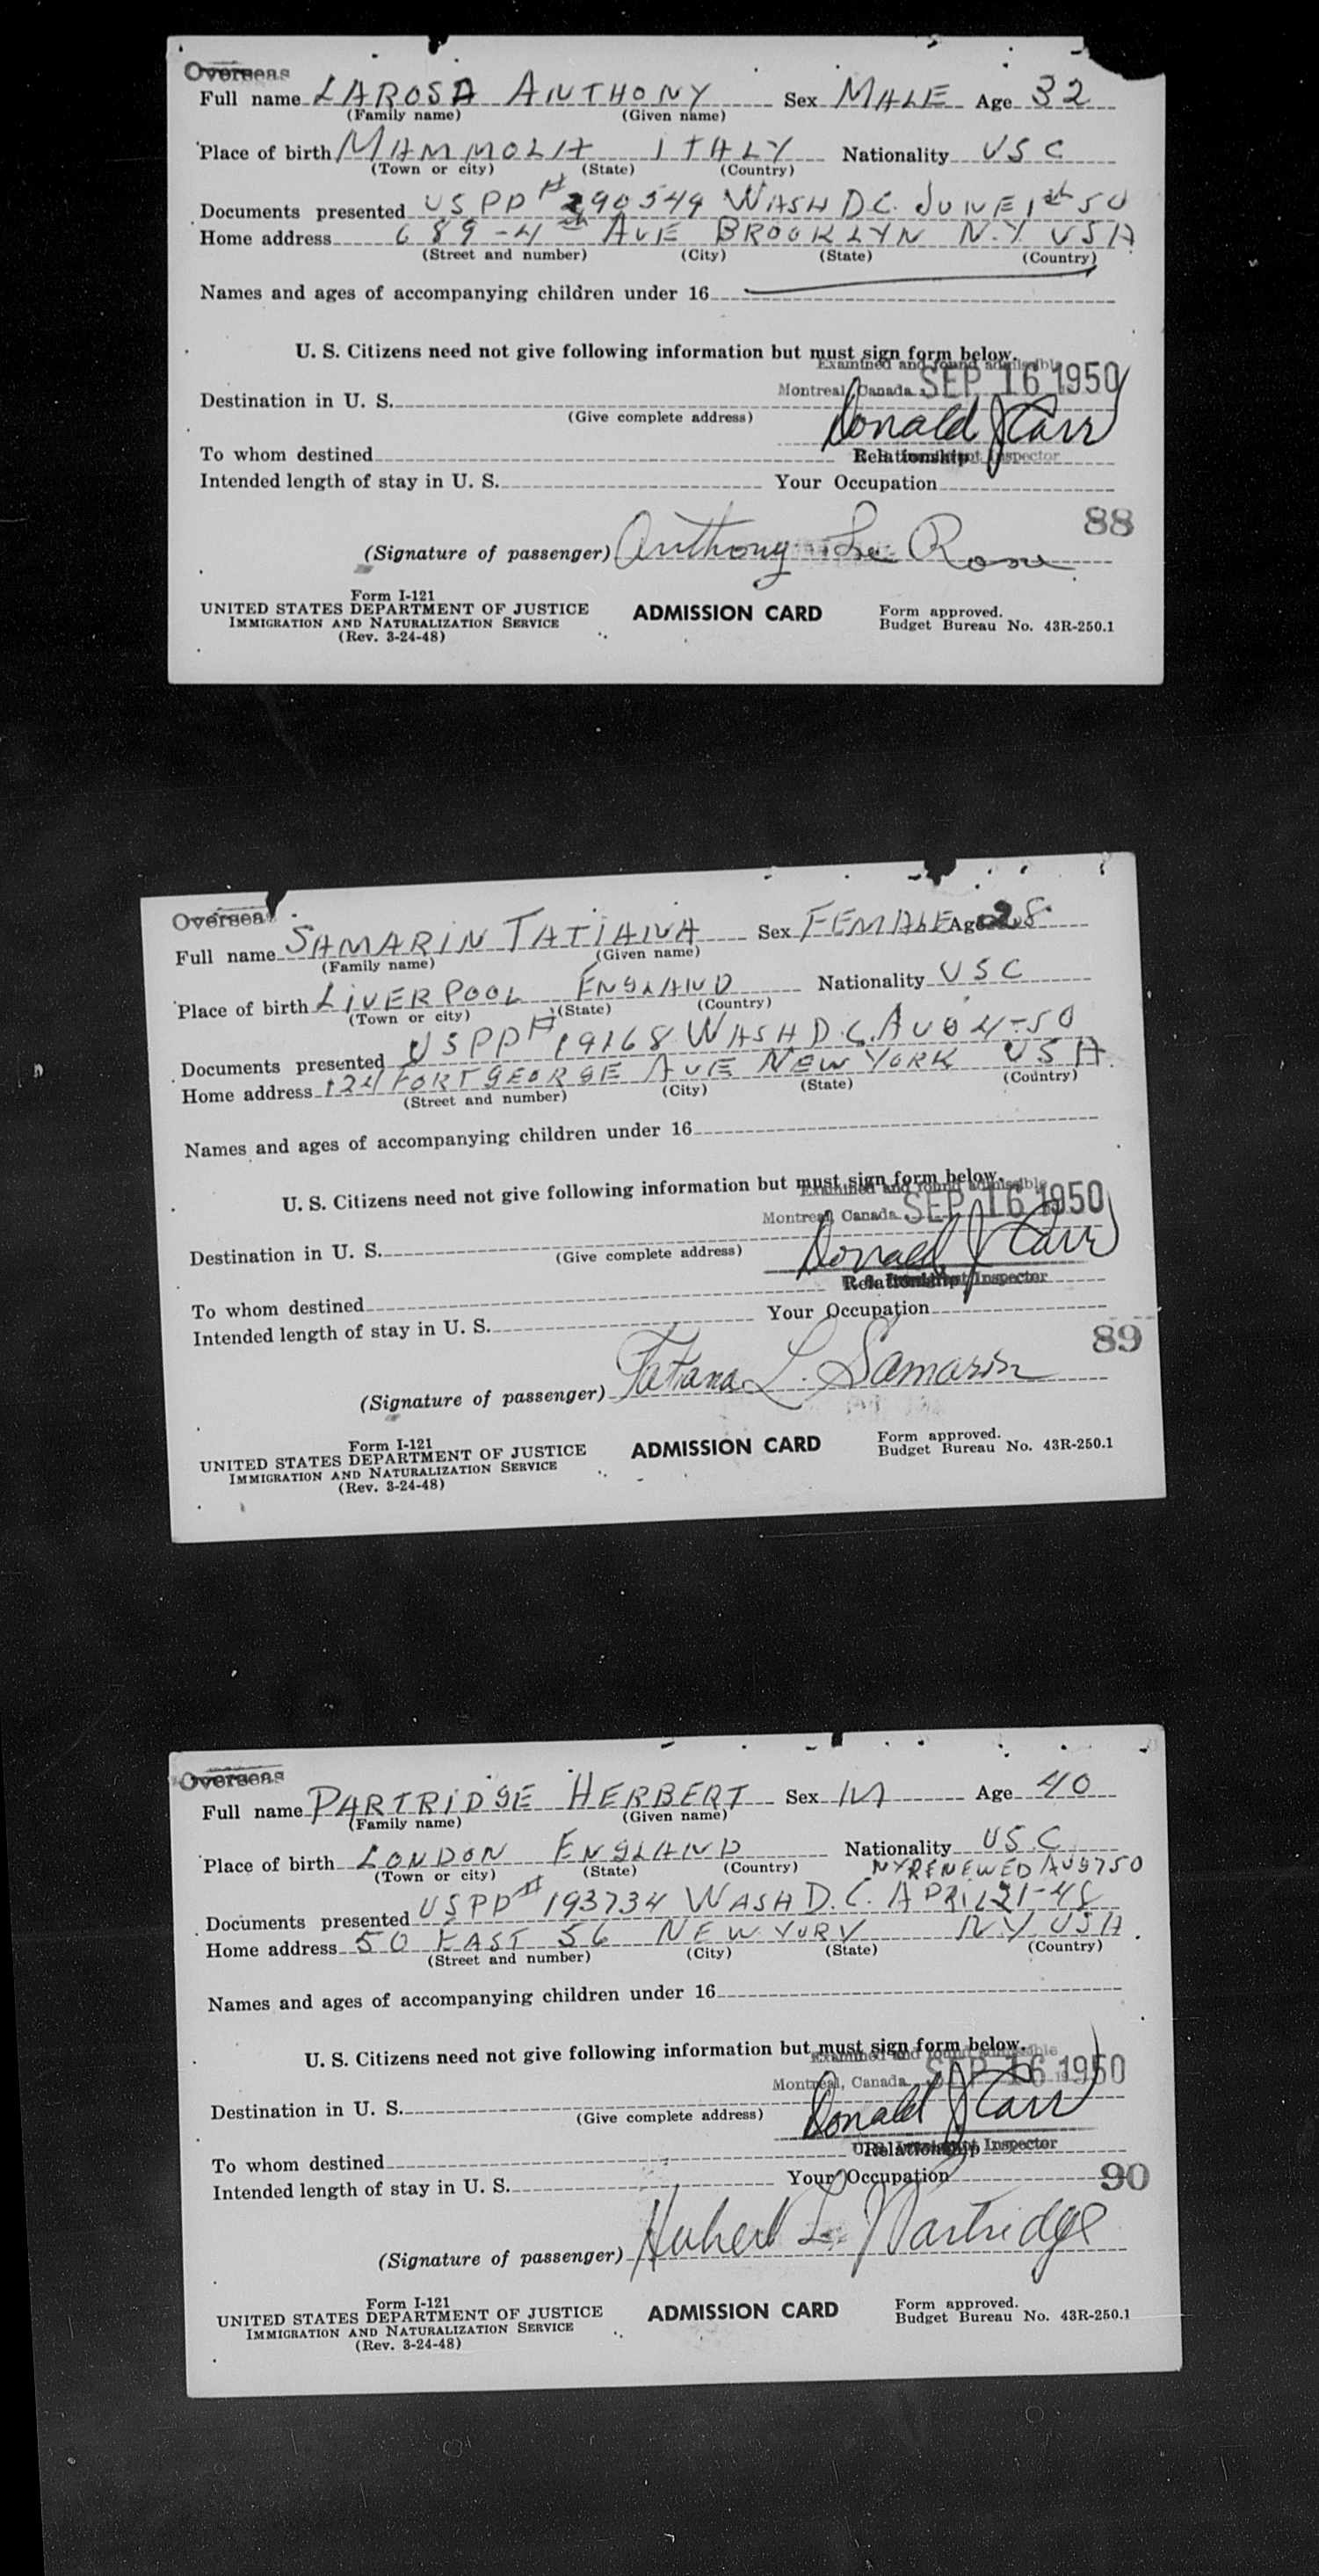 Overseas
Full name LAROSA ANTHONY Sex MALE Age 32
(Family name) (Given name)
Place of birth MAMMOLA ITALY Nationality USC
(Town or city) (State) (Country)
Documents presented USPP # 290549 WASH D.C. JUNE 1 50
Home address 689-4th AVE BROOKLYN N.Y USA
(Street and number) (City) (State) (Country)
Names and ages of accompanying children under 16
U. S. Citizens need not give following information but must sign form below.
Examined and found admissible
Montreal, Canada SEP 16 1950
Destination in U. S.
(Give complete address) Donald J Carr
To whom destined Relationship Inspector
Intended length of stay in U. S. Your Occupation
88
(Signature of passenger) Anthony La Rosa
Form I-121
UNITED STATES DEPARTMENT OF JUSTICE ADMISSION CARD Form approved.
IMMIGRATION AND NATURALIZATION SERVICE Budget Bureau No. 43R-250.1
(Rev. 3-24-48)
Overseas
Full name SAMARIN TATIANA Sex FEMALE Age 28
(Family name) (Given name)
Place of birth LIVERPOOL ENGLAND Nationality USC
(Town or city) (State) (Country)
Documents presented USPP # 19168 WASH D.C. AUG 4-50
Home address 124 FORT GEORGE AVE NEW YORK USA
(Street and number) (City) (State) (Country)
Names and ages of accompanying children under 16
U. S. Citizens need not give following information but must sign form below.
Examined and found admissible
Montreal, Canada SEP 16 1950
Destination in U. S.
(Give complete address) Donald J Carr
To whom destined Relationship Inspector
Intended length of stay in U. S. Your Occupation
89
(Signature of passenger) Tatiana L. Samarin
Form I-121
UNITED STATES DEPARTMENT OF JUSTICE ADMISSION CARD Form approved.
IMMIGRATION AND NATURALIZATION SERVICE Budget Bureau No. 43R-250.1
(Rev. 3-24-48)
Overseas
Full name PARTRIDGE HERBERT Sex M Age 40
(Family name) (Given name)
Place of birth LONDON ENGLAND Nationality USC
(Town or city) (State) (Country) NY RENEWED AUG 7 50
Documents presented USPP # 193734 WASH D.C. APRIL 21-48
Home address 50 EAST 56 NEW YORK N.Y. USA
(Street and number) (City) (State) (Country)
Names and ages of accompanying children under 16
U. S. Citizens need not give following information but must sign form below.
Examined and found admissible
Montreal, Canada SEP 16 1950
Destination in U. S.
(Give complete address) Donald J Carr
To whom destined Relationship Inspector
Intended length of stay in U. S. Your Occupation
90
(Signature of passenger) Hubert L. Partridge
Form I-121
UNITED STATES DEPARTMENT OF JUSTICE ADMISSION CARD Form approved.
IMMIGRATION AND NATURALIZATION SERVICE Budget Bureau No. 43R-250.1
(Rev. 3-24-48)